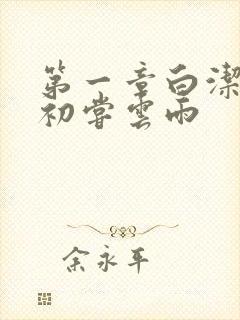 第一章白潔
初嘗雲雨
余永平